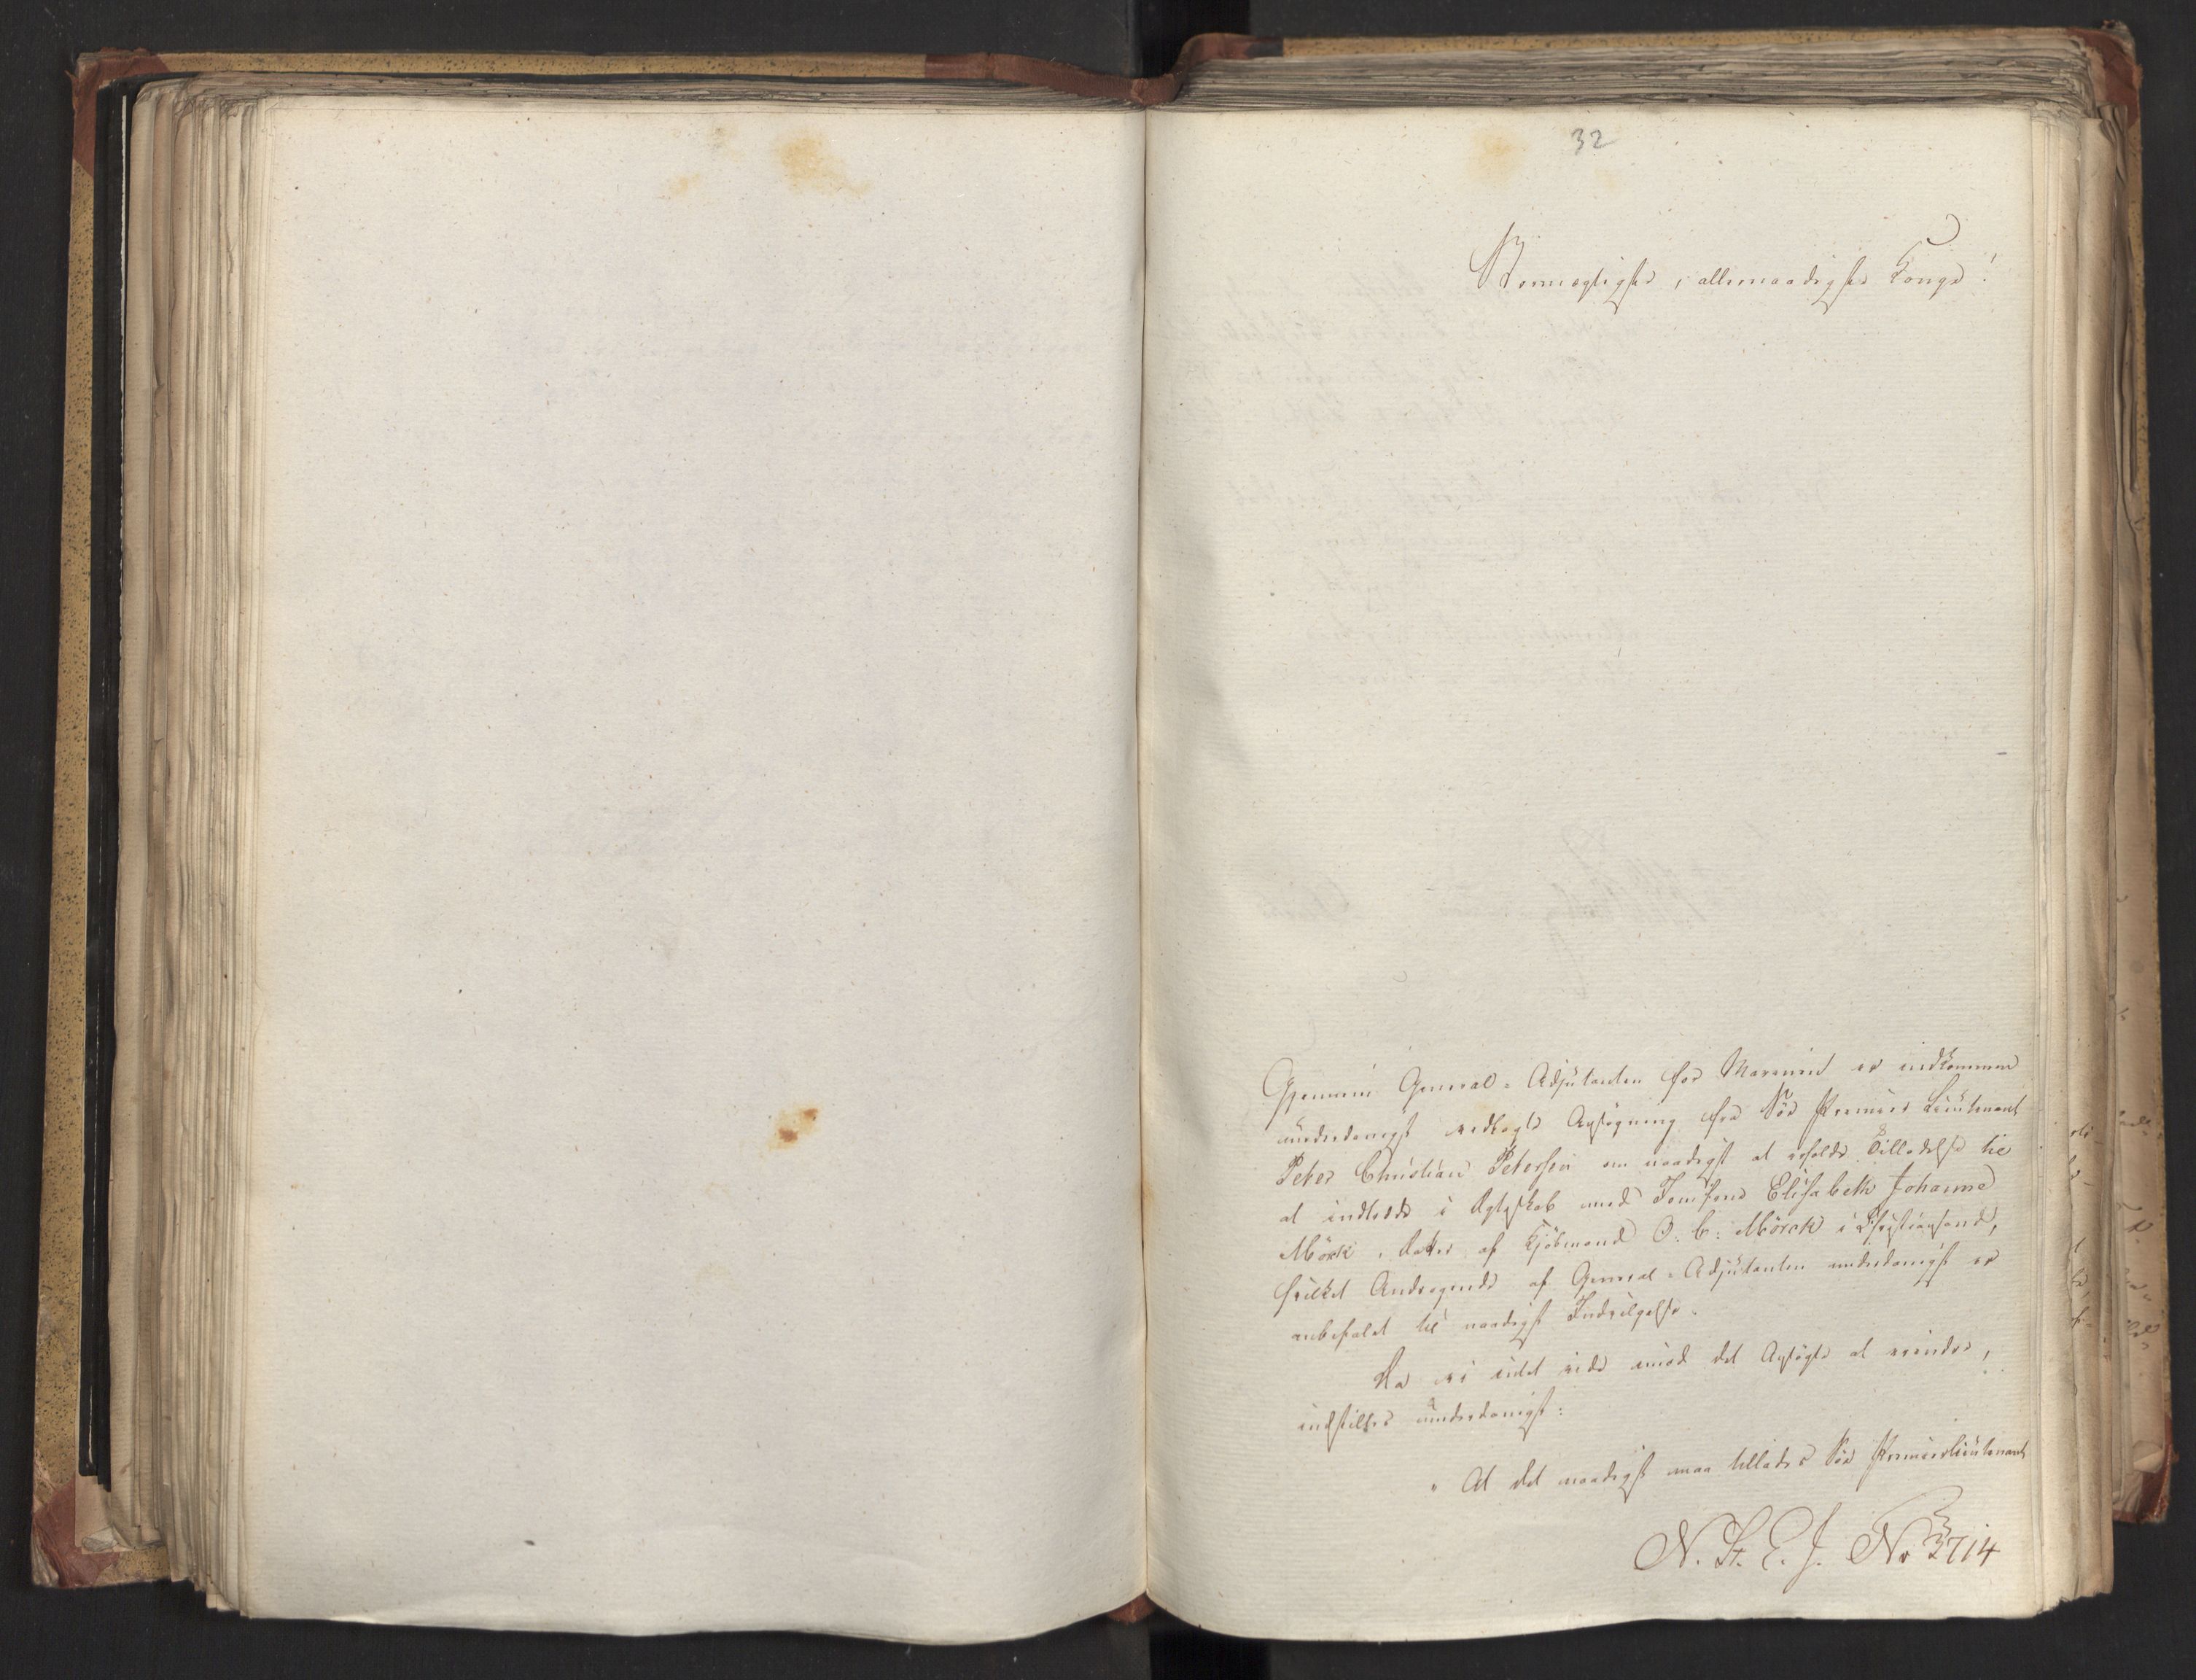 32
Stormægtigste, allernaadigste Konge!
Gjennem General-Adjutanten for Marinen er indkommen
underdanigst vedlagte Ansøgning fra Søe Premier Lieutenant
Peter Christian Petersen om naadigst at erholde Tilladelse til
at indtræde i Ægteskab med Jomfrue Elisabeth Johanne
Mörk, datter af Kjöbmand O. C. Mörch i Christiansand,
hvilket Andragende af General-Adjutanten underdanigst er
anbefalet til naadigst Indvilgelse.
Da vi intet vide imod det Ansøgte at erindre,
indstilles underdanigst:
" At det naadigst maa tillades Söe Premierlieutenant
N. St. E. J. No 3714